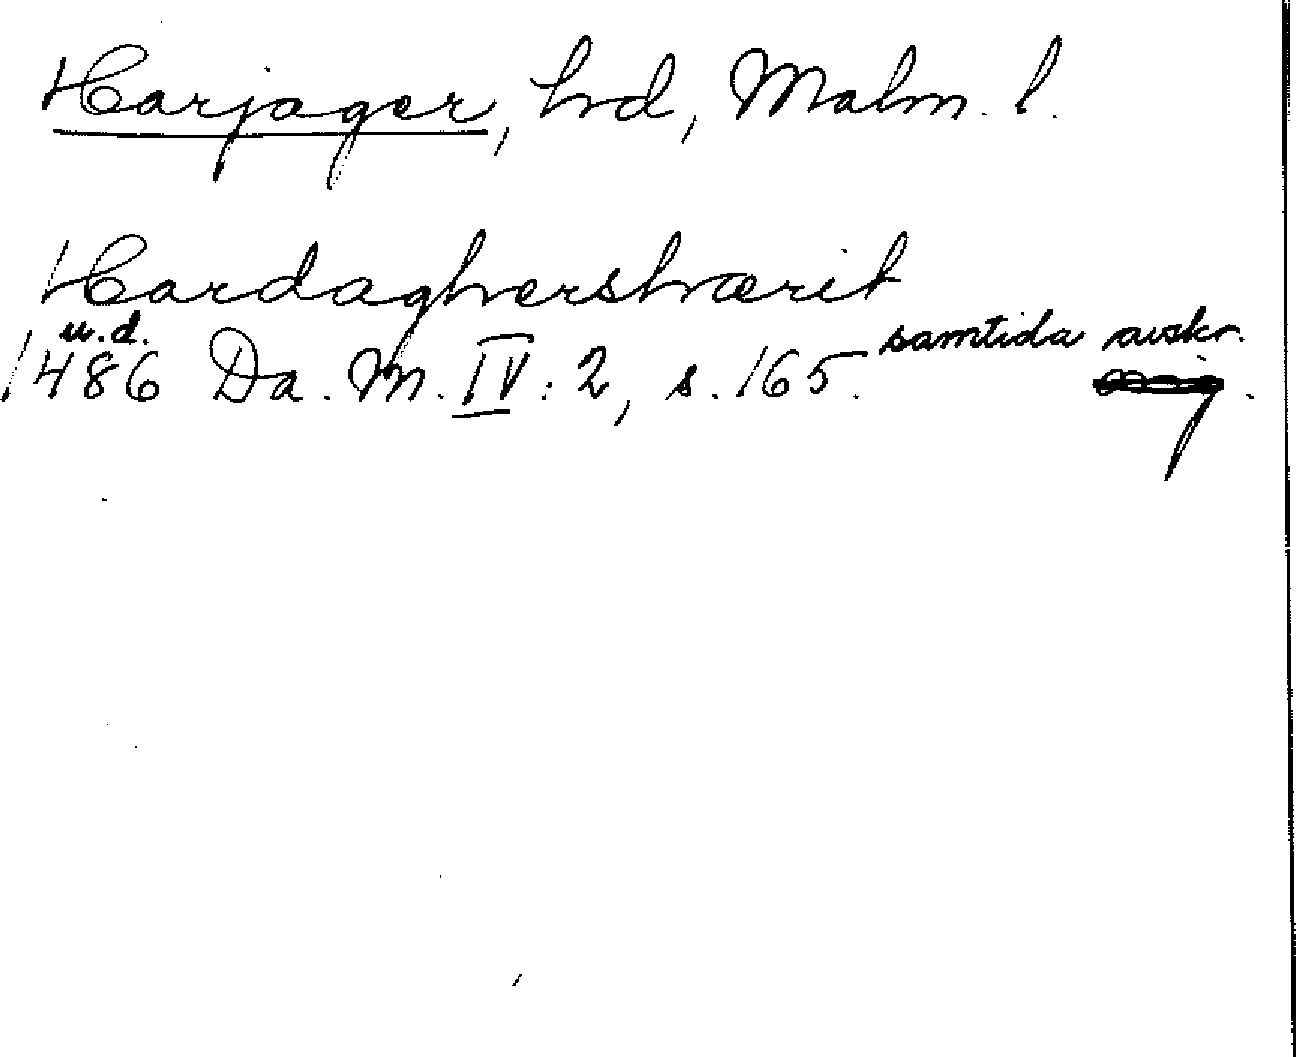 Harjager, hd, Malm. l.
Hardaghershærit
u.d. samtida avskr.
1486 Da. M. IV: 2, s. 165.